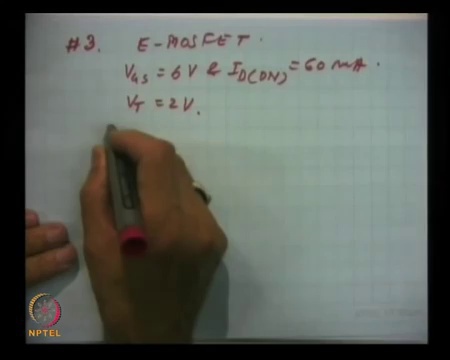 #3. E-MOSFET.
V_GS = 6 V & I_D(ON) = 60 mA.
V_T = 2 V.
NPTEL